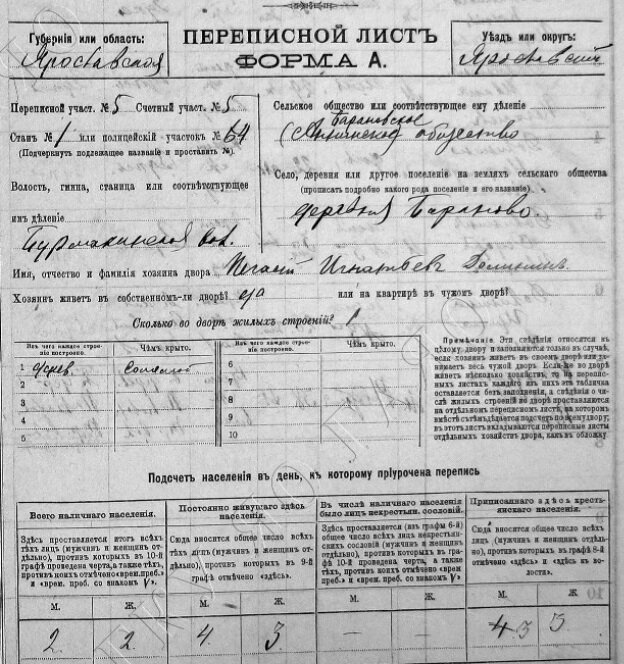 Губернія или область:
Ярославская
ПЕРЕПИСНОЙ ЛИСТЪ
ФОРМА А.
Уѣздъ или округъ:
Ярославскій
Переписной участ. № 5 Счетный участ. № 5
Станъ № 1 или полицейскій участокъ № 64
(Подчеркнуть подлежащее названіе и проставить №).
Волость, гмина, станица или соотвѣтствующее
имъ дѣленіе
Бурмакинская вол.
Сельское общество или соотвѣтствующее ему дѣленіе
Барановское
общество
Село, деревня или другое поселеніе на земляхъ сельскаго общества
(прописать подробно какого рода поселеніе и его названіе)
деревня Бараново.
Имя, отчество и фамилія хозяина двора Игнатьевъ
Хозяинъ живетъ въ собственномъ-ли дворѣ? да или на квартирѣ въ чужомъ дворѣ?
Сколько во дворѣ жилыхъ строеній? 1
Изъ чего каждое строе-
ніе построено.
Чѣмъ крыто.
Изъ чего каждое строе-
ніе построено.
Чѣмъ крыто.
1 дерев. Соломой
2
3
4
5
6
7
8
9
10
Примѣчаніе. Эти свѣдѣнія относятся къ
цѣлому двору и заполняются только въ случаѣ,
если хозяинъ живетъ въ своемъ дворѣ или за-
нимаетъ весь чужой дворъ. Если же во дворѣ
живетъ нѣсколько хозяйствъ, то на перепис-
ныхъ листахъ каждаго изъ нихъ эта табличка
оставляется безъ заполненія, а свѣдѣнія о чи-
слѣ жилыхъ строеній во дворѣ проставляются
на отдѣльномъ переписномъ листѣ, на которомъ
вмѣстѣ съ тѣмъ дѣлается подсчетъ по всему двору;
въ этотъ листъ вкладываются переписные листы
отдѣльныхъ хозяйствъ двора, какъ въ обложку
Подсчетъ населенія въ день, къ которому пріурочена перепись
Всего наличнаго населенія.
Здѣсь проставляется итогъ всѣхъ
тѣхъ лицъ (мужчинъ и женщинъ от-
дѣльно), противъ которыхъ въ 10-й
графѣ проведена черта, а также тѣхъ,
противъ коихъ отмѣчено «врем. преб.»
и «врем. преб. со знакомъ V».
Постоянно живущаго здѣсь
населенія.
Сюда вносится общее число всѣхъ
тѣхъ лицъ (мужчинъ и женщинъ от-
дѣльно), противъ которыхъ въ 9-й
графѣ отмѣчено «здѣсь».
Въ числѣ наличнаго населенія
было лицъ некрестьян. сословій:
Здѣсь проставляется (въ графы 6-й)
общее число всѣхъ лицъ некрестьян-
скихъ сословій (мужчинъ и женщинъ
отдѣльно), противъ которыхъ въ гра-
фѣ 10-й проведена черта, а также
тѣхъ, противъ коихъ отмѣчено «врем.
преб.» и «врем. преб. со знакомъ V».
Приписаннаго здѣсь кресть-
янскаго населенія.
Сюда вносится общее число всѣхъ
лицъ (мужчинъ и женщинъ отдѣль-
но), противъ которыхъ въ графѣ 8-й
отмѣчено «здѣсь» и «здѣсь къ во-
лости».
М. Ж. М. Ж. М. Ж. М. Ж.
2 2. 4. 3 — — 4 3 3.